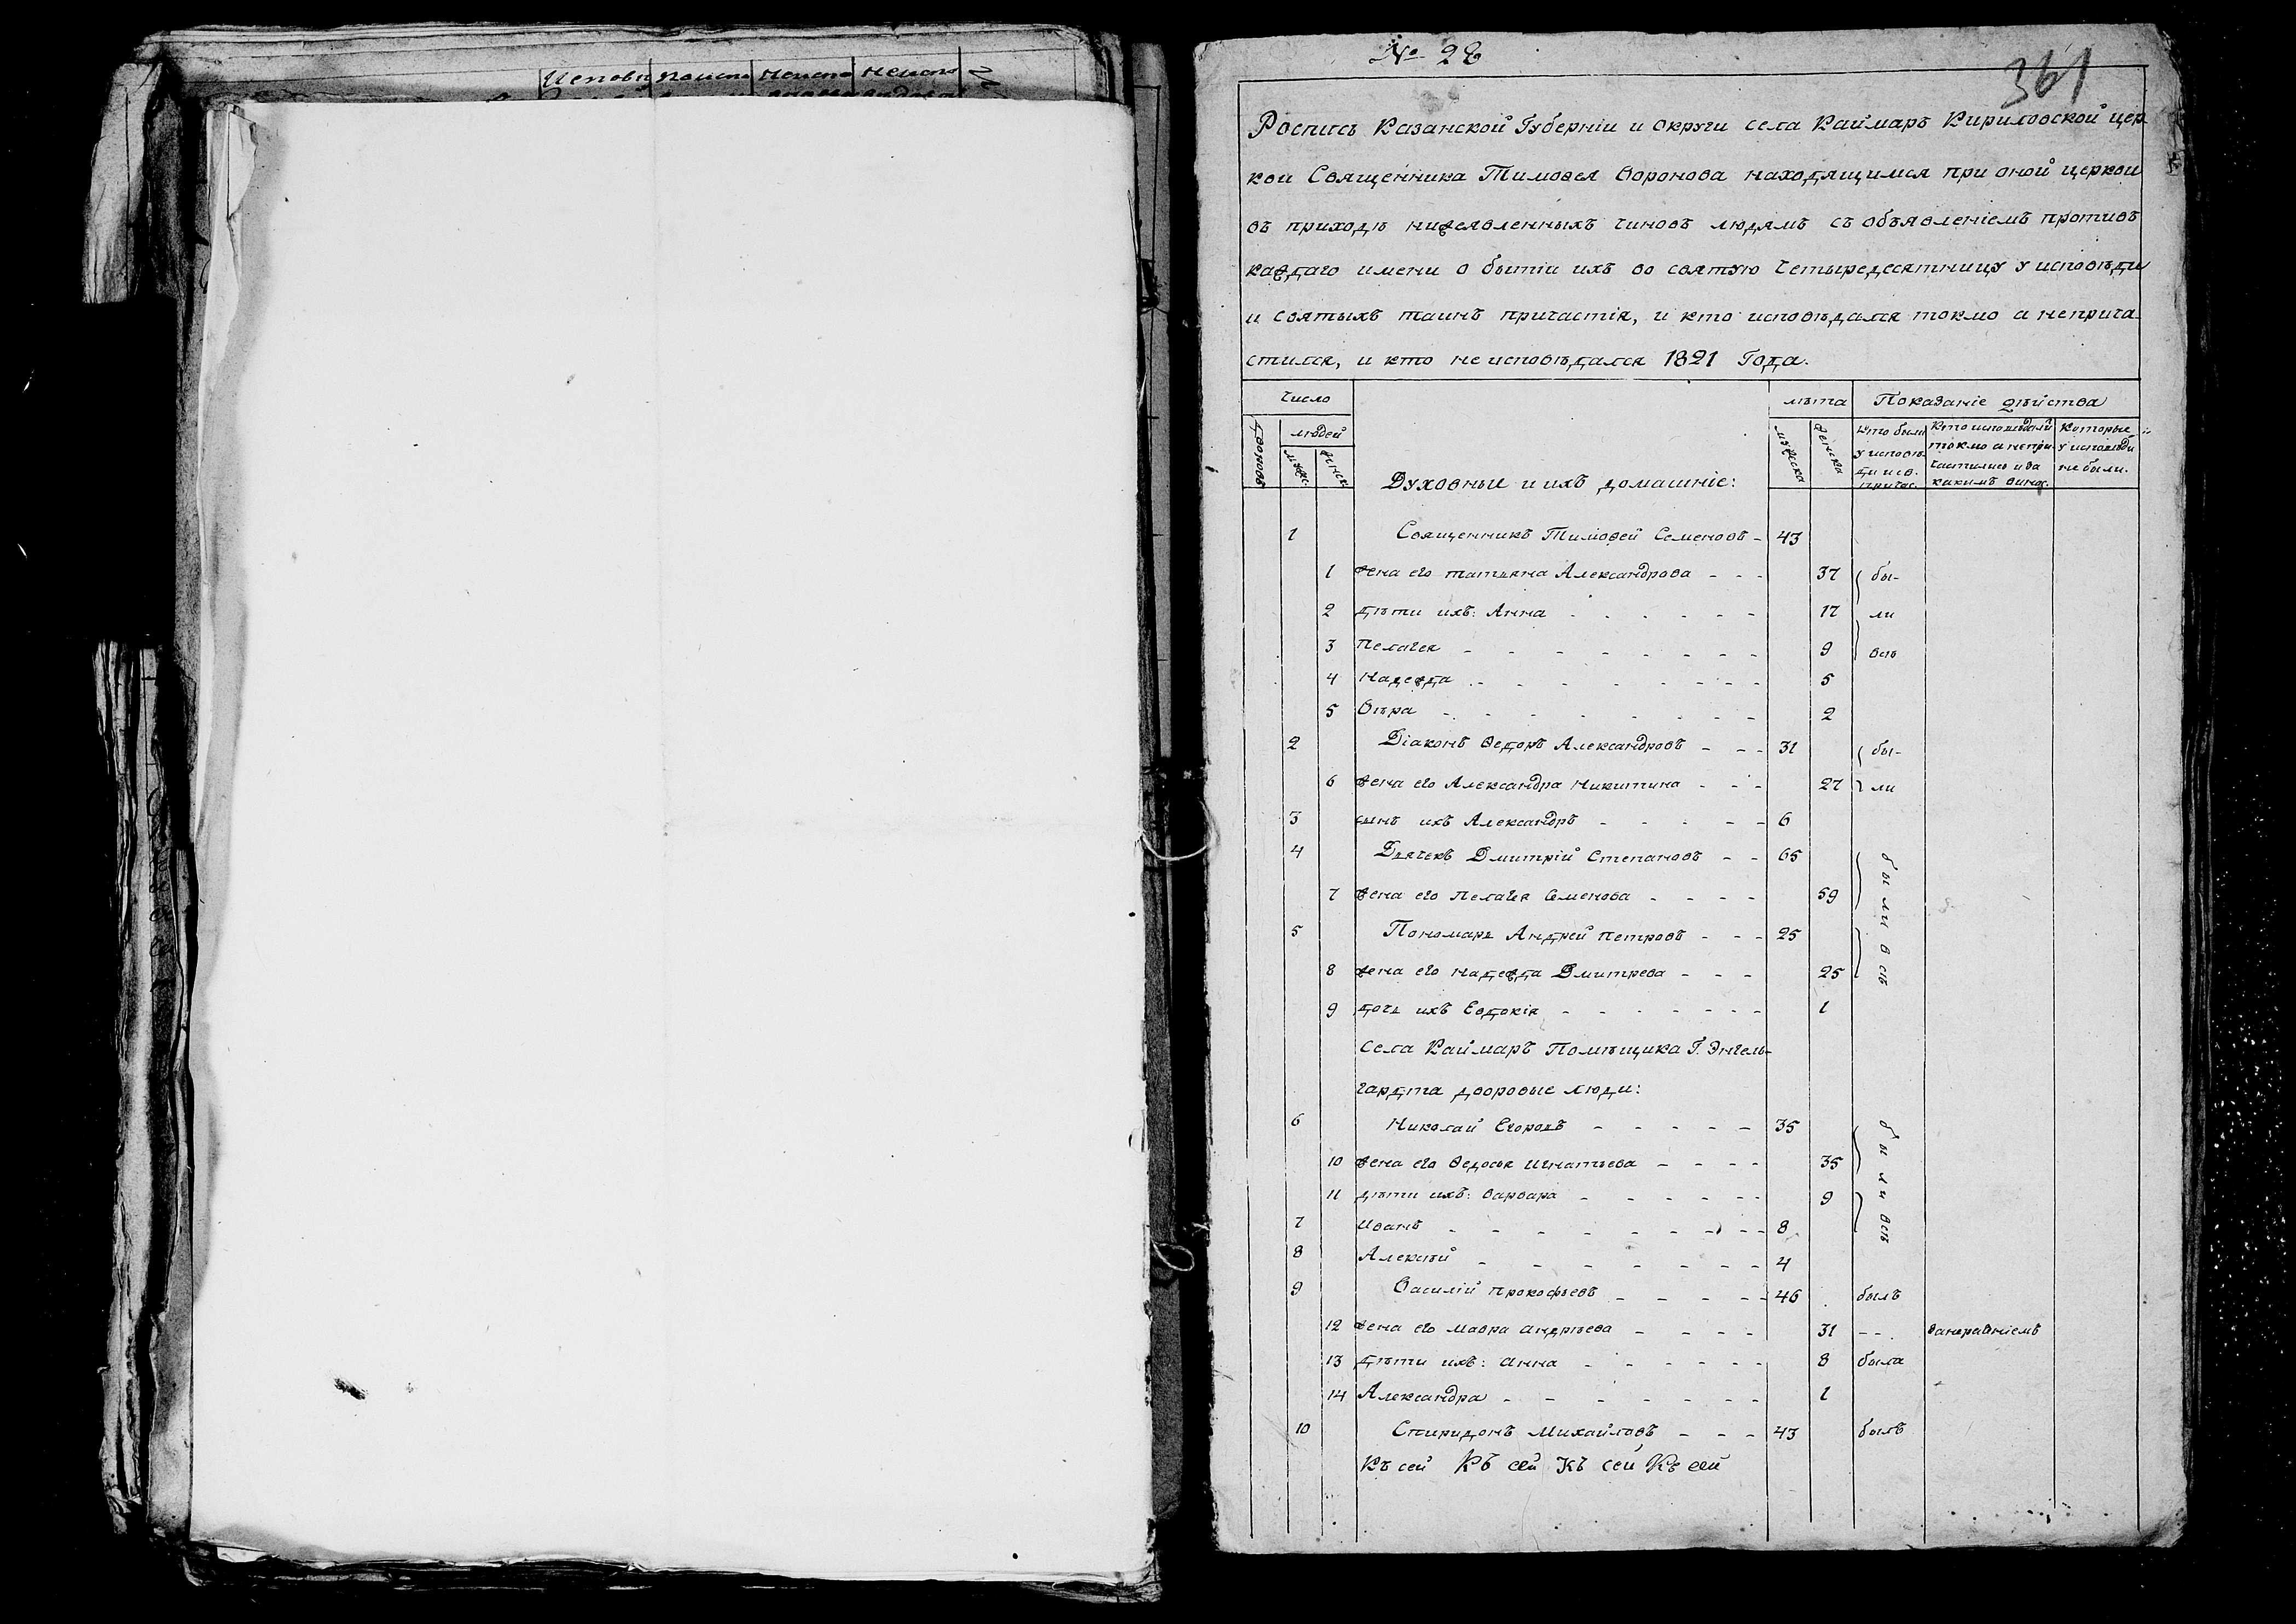 № 28
361
Роспись Казанской Губерніи и округи села Каймаръ Кириловской цер
кви Священника Тимоѳея Воронова находящимся при оной церкви
въ приходѣ нижеявленныхъ чиновъ людямъ съ объявленіемъ противъ
каждаго имени о бытіи ихъ во святую четыредесятницу у исповѣди
и святыхъ таинъ причастія, и кто исповѣдался токмо а неприча
стился, и кто не исповѣдался 1821 Года.
число лѣта Показаніе дѣйства
дворовъ людей мужеска женска Кто были Кто исповѣдали Которые
у исповѣ- токмо а непри- у исповѣди
муж. женск. ди и с. частились и за не были.
причас. какимъ винос.
Духовные и ихъ домашніе:
1 Священникъ Тимоѳей Семеновъ 43
1 жена его татьяна Александрова 37 бы-
2 дѣти ихъ: Анна 17 ли
3 Пелагея 9 всѣ
4 Надежда 5
5 Вѣра 2
2 Діаконъ Ѳедоръ Александровъ 31 бы-
6 жена его Александра Никитина 27 ли
3 сынъ ихъ Александръ 6
4 Дьячекъ Дмитрій Степановъ 65 были всѣ
7 жена его Пелагея Семенова 59
5 Пономарь Андрей Петровъ 25
8 жена его Надежда Дмитрева 25
9 дочь ихъ Евдокія 1
села Каймаръ Помѣщика Г. Энгель-
гардта дворовые люди:
6 Николай Егоровъ 35 были всѣ
10 жена его Ѳедосья Игнатьева 35
11 дѣти ихъ: Варвара 9
7 Иванъ 8
8 Алексѣй 4
9 Василій Прокофьевъ 46 былъ
12 жена его Мавра Андрѣева 31
13 дѣти ихъ: Анна 8 была
14 Александра 1
10 Спиридонъ Михайловъ 43 былъ
Къ сей Къ сей Къ сей Къ сей